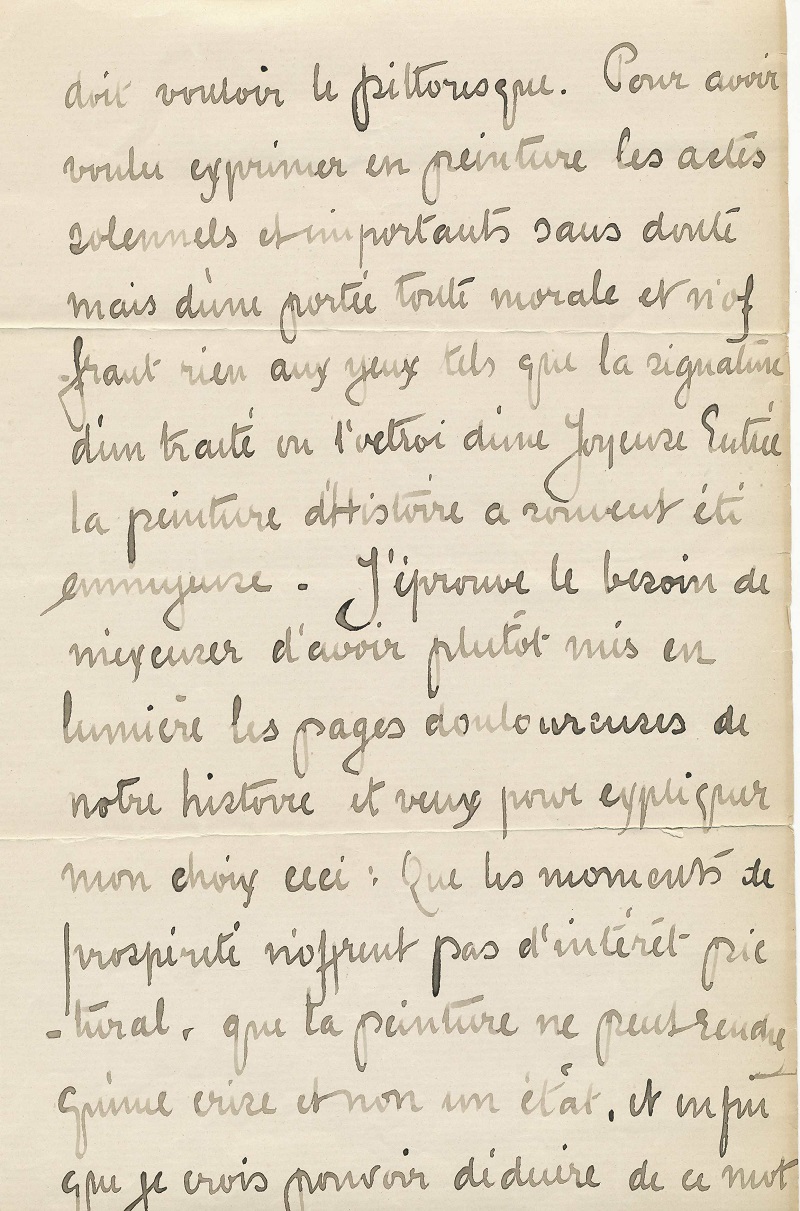 doit vouloir le pittoresque. Pour avoir
voulu exprimer en peinture les actes
solennels et importants sans doute
mais d'une portée toute morale et n'of
-frant rien aux yeux tels que la signature
d'un traité ou l'octroi d'une Joyeuse Entrée
la peinture d'Histoire a souvent été
ennuyeuse. J'éprouve le besoin de
m'excuser d'avoir plutôt mis en
lumière les pages douloureuses de
notre histoire et veux pour expliquer
mon choix ceci : Que les moments de
prospérité n'offrent pas d'intérêt pic
-tural, que la peinture ne peut rendre
qu'une crise et non un état, et enfin
que je crois pouvoir déduire de ce mot